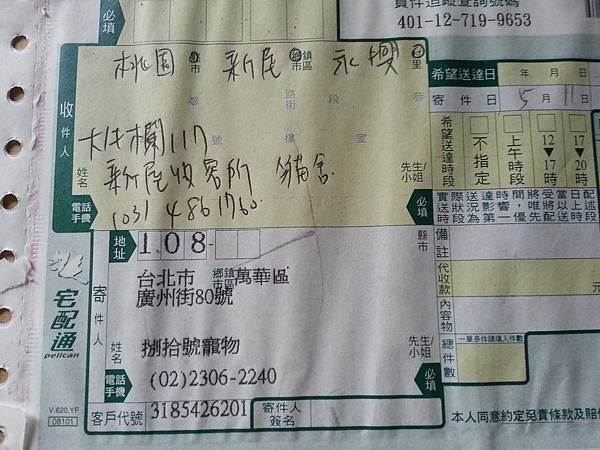 貨件追蹤查詢號碼
401-12-719-9653
必填
桃園 縣市 新屋 鄉鎮市區 永興 村里
鄰 路街 段 巷
希望送達日 年 月 日
寄件日 5月11日
收件人
號 樓 室
117
新屋收容所 貓舍
姓名
先生/小姐
電話手機
(03) 4861760
必填
希望送達時段
不指定
上午時段
12-17時
17-20時
實際送達時間,將受當日配送狀況影響,唯將以上述時段為第一優先配送
地址
108-
縣市
台北市 鄉鎮市區 萬華區
廣州街80號
備註
代收款 元
內容物
寄件人
宅配通
pelican
捌拾號寵物
姓名
先生/小姐
總件數
一單多件請填入件數
電話手機
(02)2306-2240
必填
V.620.YF
08101
客戶代號 3185426201
寄件人簽名
本人同意約定免責條款及賠